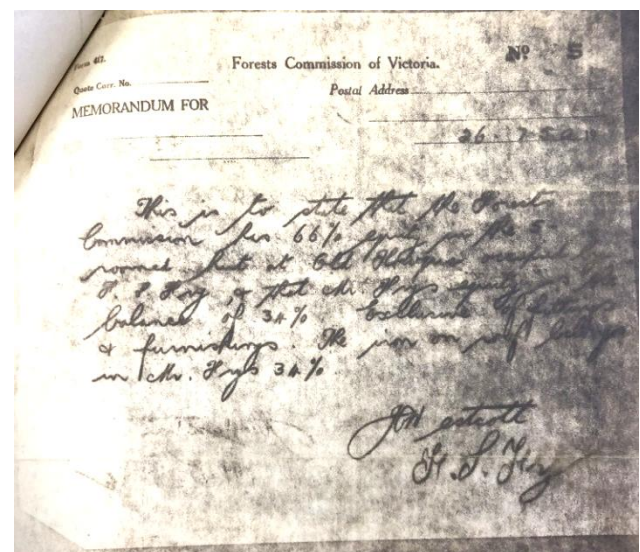 Form 417.
Forests Commission of Victoria.
Nº 5
Quote Corr. No.
Postal Address
MEMORANDUM FOR
26. 7. 50
This is to state that the Forest
Commission has 66% equity in the 5
roomed hut at
& that Mr. Foys equity is the
balance of 34%. Exclusive of fittings
& furnishings. The iron on roof belongs
in Mr. Foys 34%